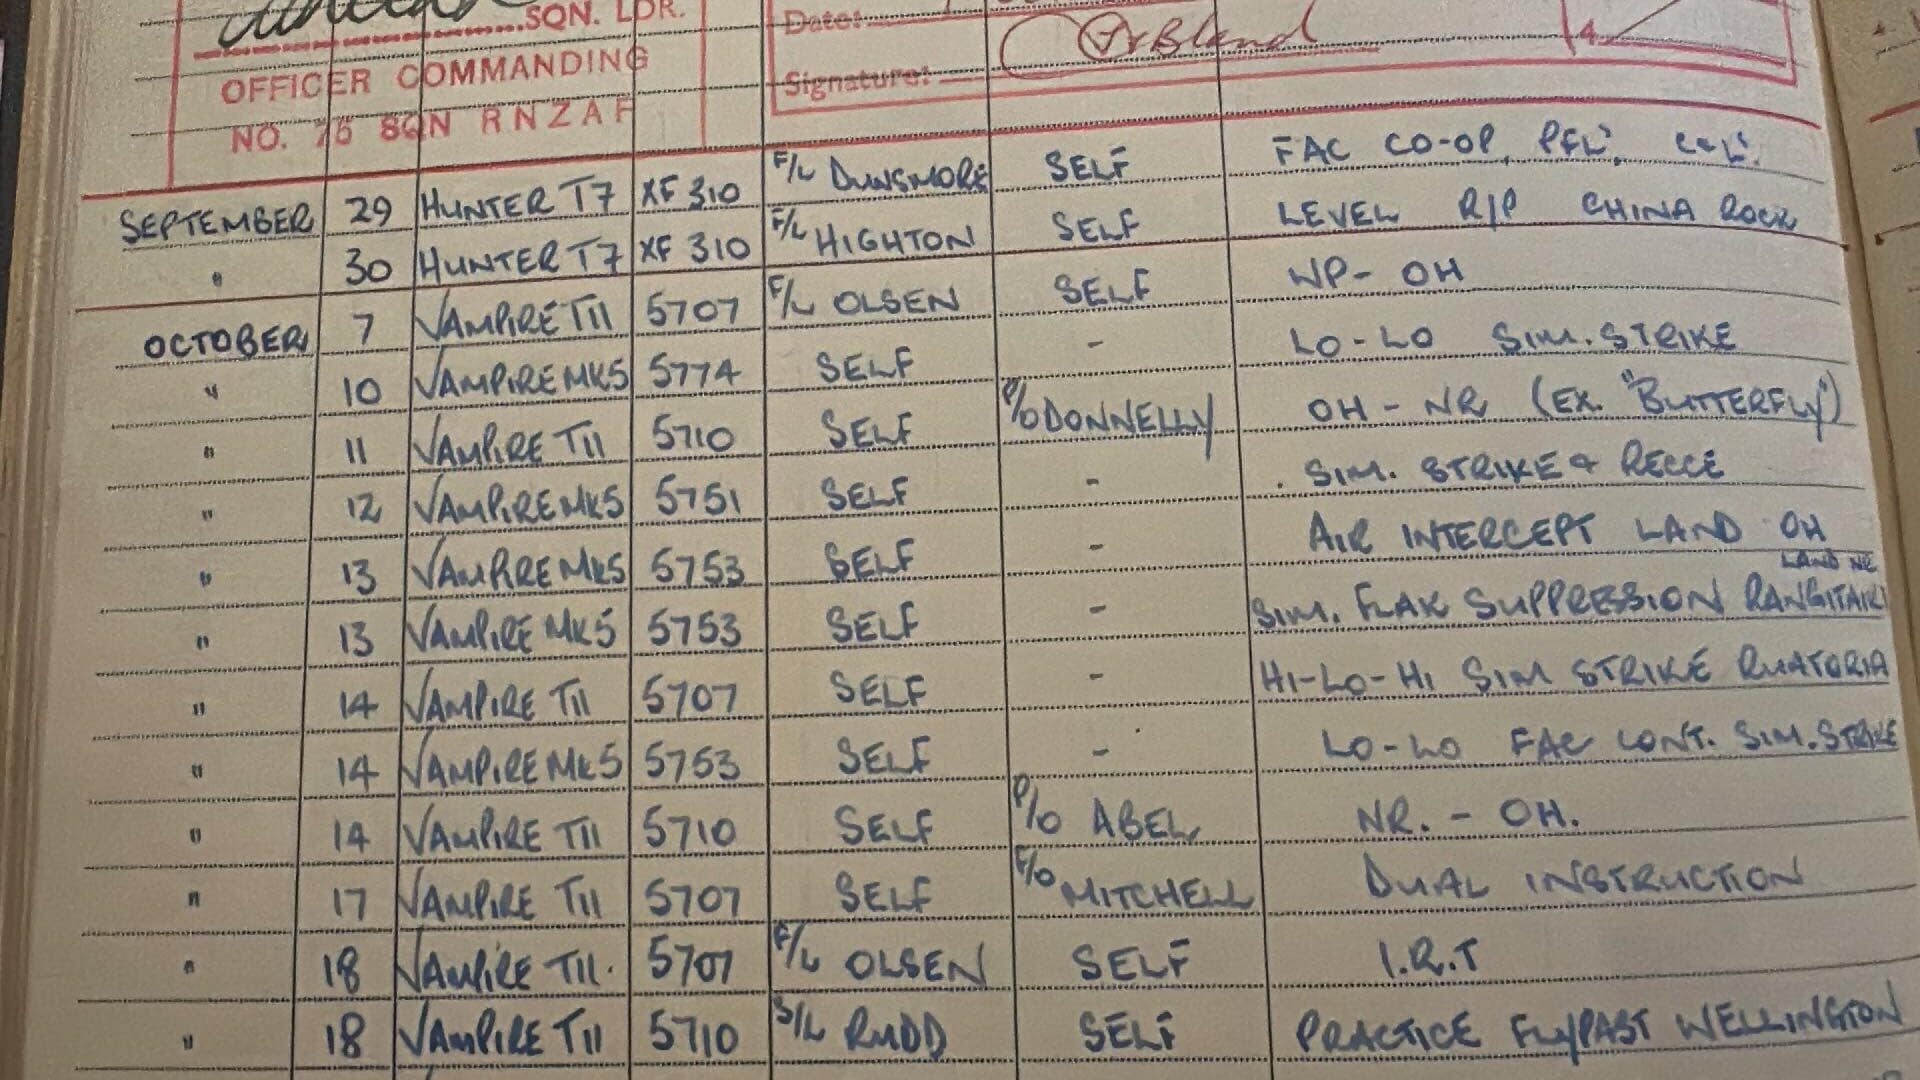 SQN. LDR.
OFFICER COMMANDING
NO. 75 SQN RNZAF
Date:
Signature:
SEPTEMBER 29 HUNTER T7 XF 310 F/L DUNSMORE SELF FAC CO-OP, PFL'
" 30 HUNTER T7 XF 310 F/L HIGHTON SELF LEVEL R/P CHINA ROCK
OCTOBER 7 VAMPIRE T11 5707 F/L OLSEN SELF WP - OH
" 10 VAMPIRE MK5 5774 SELF - LO-LO SIM. STRIKE
" 11 VAMPIRE T11 5710 SELF P/O DONNELLY OH - NR (EX. "BUTTERFLY")
" 12 VAMPIRE MK5 5751 SELF - SIM. STRIKE & RECCE
" 13 VAMPIRE MK5 5753 SELF - AIR INTERCEPT LAND OH
" 13 VAMPIRE MK5 5753 SELF - SIM. FLAK SUPPRESSION RANGITAIKI LAND NR
" 14 VAMPIRE T11 5707 SELF - HI-LO-HI SIM STRIKE RUATORIA
" 14 VAMPIRE MK5 5753 SELF - LO-LO FAC CONT. SIM. STRIKE
" 14 VAMPIRE T11 5710 SELF P/O ABEL NR. - OH.
" 17 VAMPIRE T11 5707 SELF F/O MITCHELL DUAL INSTRUCTION
" 18 VAMPIRE T11. 5707 F/L OLSEN SELF I.R.T
" 18 VAMPIRE T11 5710 S/L RUDD SELF PRACTICE FLYPAST WELLINGTON